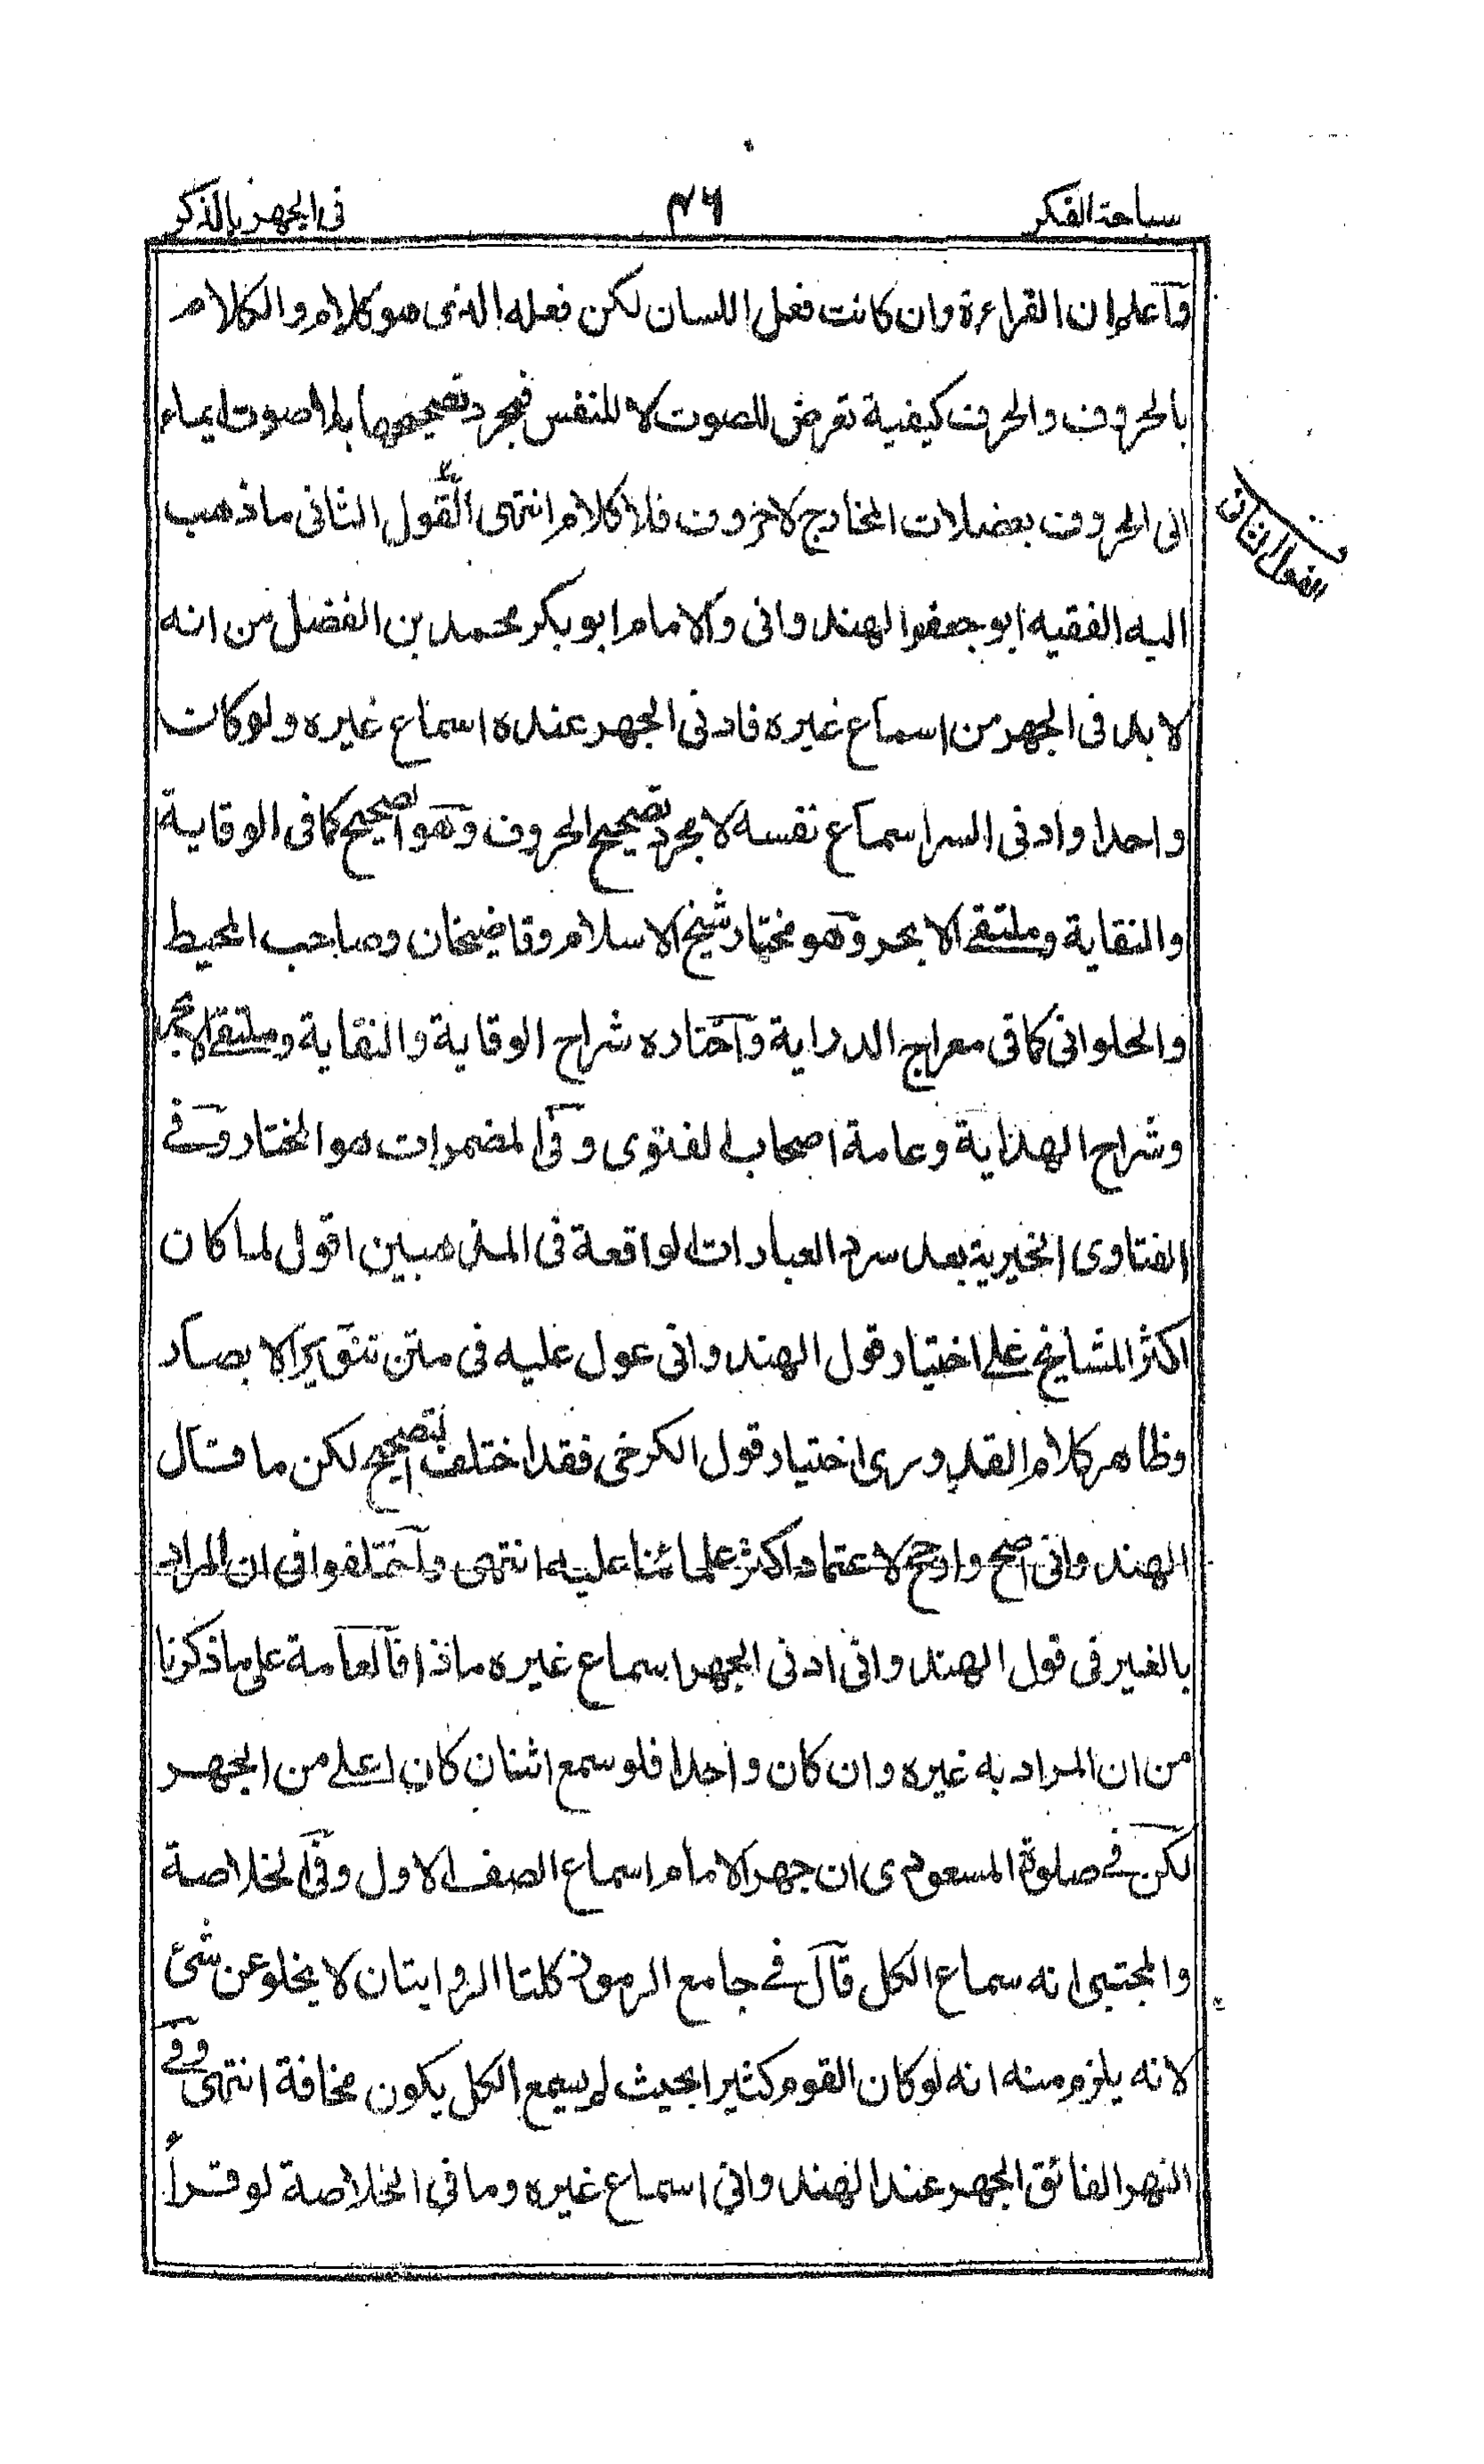 سباحة الفكر
٤٦
فى الجهر بالذكر
واعلم ان القراءة وان كانت فعل اللسان لكن فعله الذى هو كلام والكلام
بالحروف والحرف كيفية تعرض للصوت لا للنفس فمجرد تصحيحها بلا صوت ايماء
الى الحروف بعضلات المخارج لا حروف فلا كلام انتهى القول الثانى ما ذهب
القول الثانى
اليه الفقيه ابو جعفر الهندوانى والامام ابو بكر محمد بن الفضل من انه
لا بد فى الجهر من اسماع غيره فادنى الجهر عنده اسماع غيره ولو كان
واحدا وادنى السر اسماع نفسه لا مجرد تصحيح الحروف وهو الصحيح كما فى الوقاية
والنقاية وملتقے الابحر وهو مختار شيخ الاسلام وقاضيخان وصاحب المحيط
والحلوانى كما فى معراج الدراية واختاره شراح الوقاية والنقاية وملتقے الابحر
وشراح الهداية وعامة اصحاب الفتوى وفى المضمرات هو المختار وفے
الفتاوى الخيرية بعد سرد العبارات الواقعة فى المذهبين اقول لما كان
اكثر المشايخ علے اختيار قول الهندوانى عول عليه فى متن تنوير الابصار
وظاهر كلام القدورى اختيار قول الكرخى فقد اختلف التصحيح لكن ما قال
الهندوانى اصح وارجح لاعتماد اكثر علمائنا عليه انتهى واختلفوا فى ان المراد
بالغير فى قول الهندوانى ادنى الجهر اسماع غيره ماذا فالعامة على ما ذكرنا
من ان المراد به غيره وان كان واحدا فلو سمع اثنان كان اعلے من الجهر
لكن فے صلوة المسعودى ان جهر الامام اسماع الصف الاول وفى الخلاصة
والمجتبى انه سماع الكل قال فے جامع الرموز كلتا الروايتان لا يخلو عن شئ
لانه يلزم منه انه لو كان القوم كثيرا بحيث لم يسمع الكل يكون مخافة انتهى وفے
النهر الفائق الجهر عند الهندوانى اسماع غيره وما فى الخلاصة لو قرأ